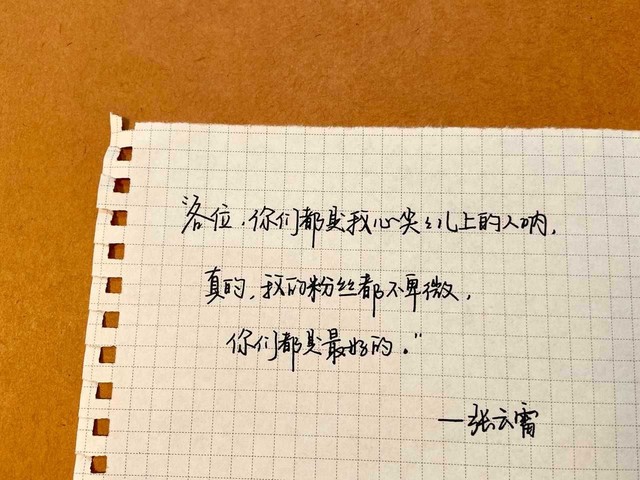 "各位,你们都是我心尖尖儿上的人呐,
真的,我的粉丝都不卑微,
你们都是最好的。"
—张云霄